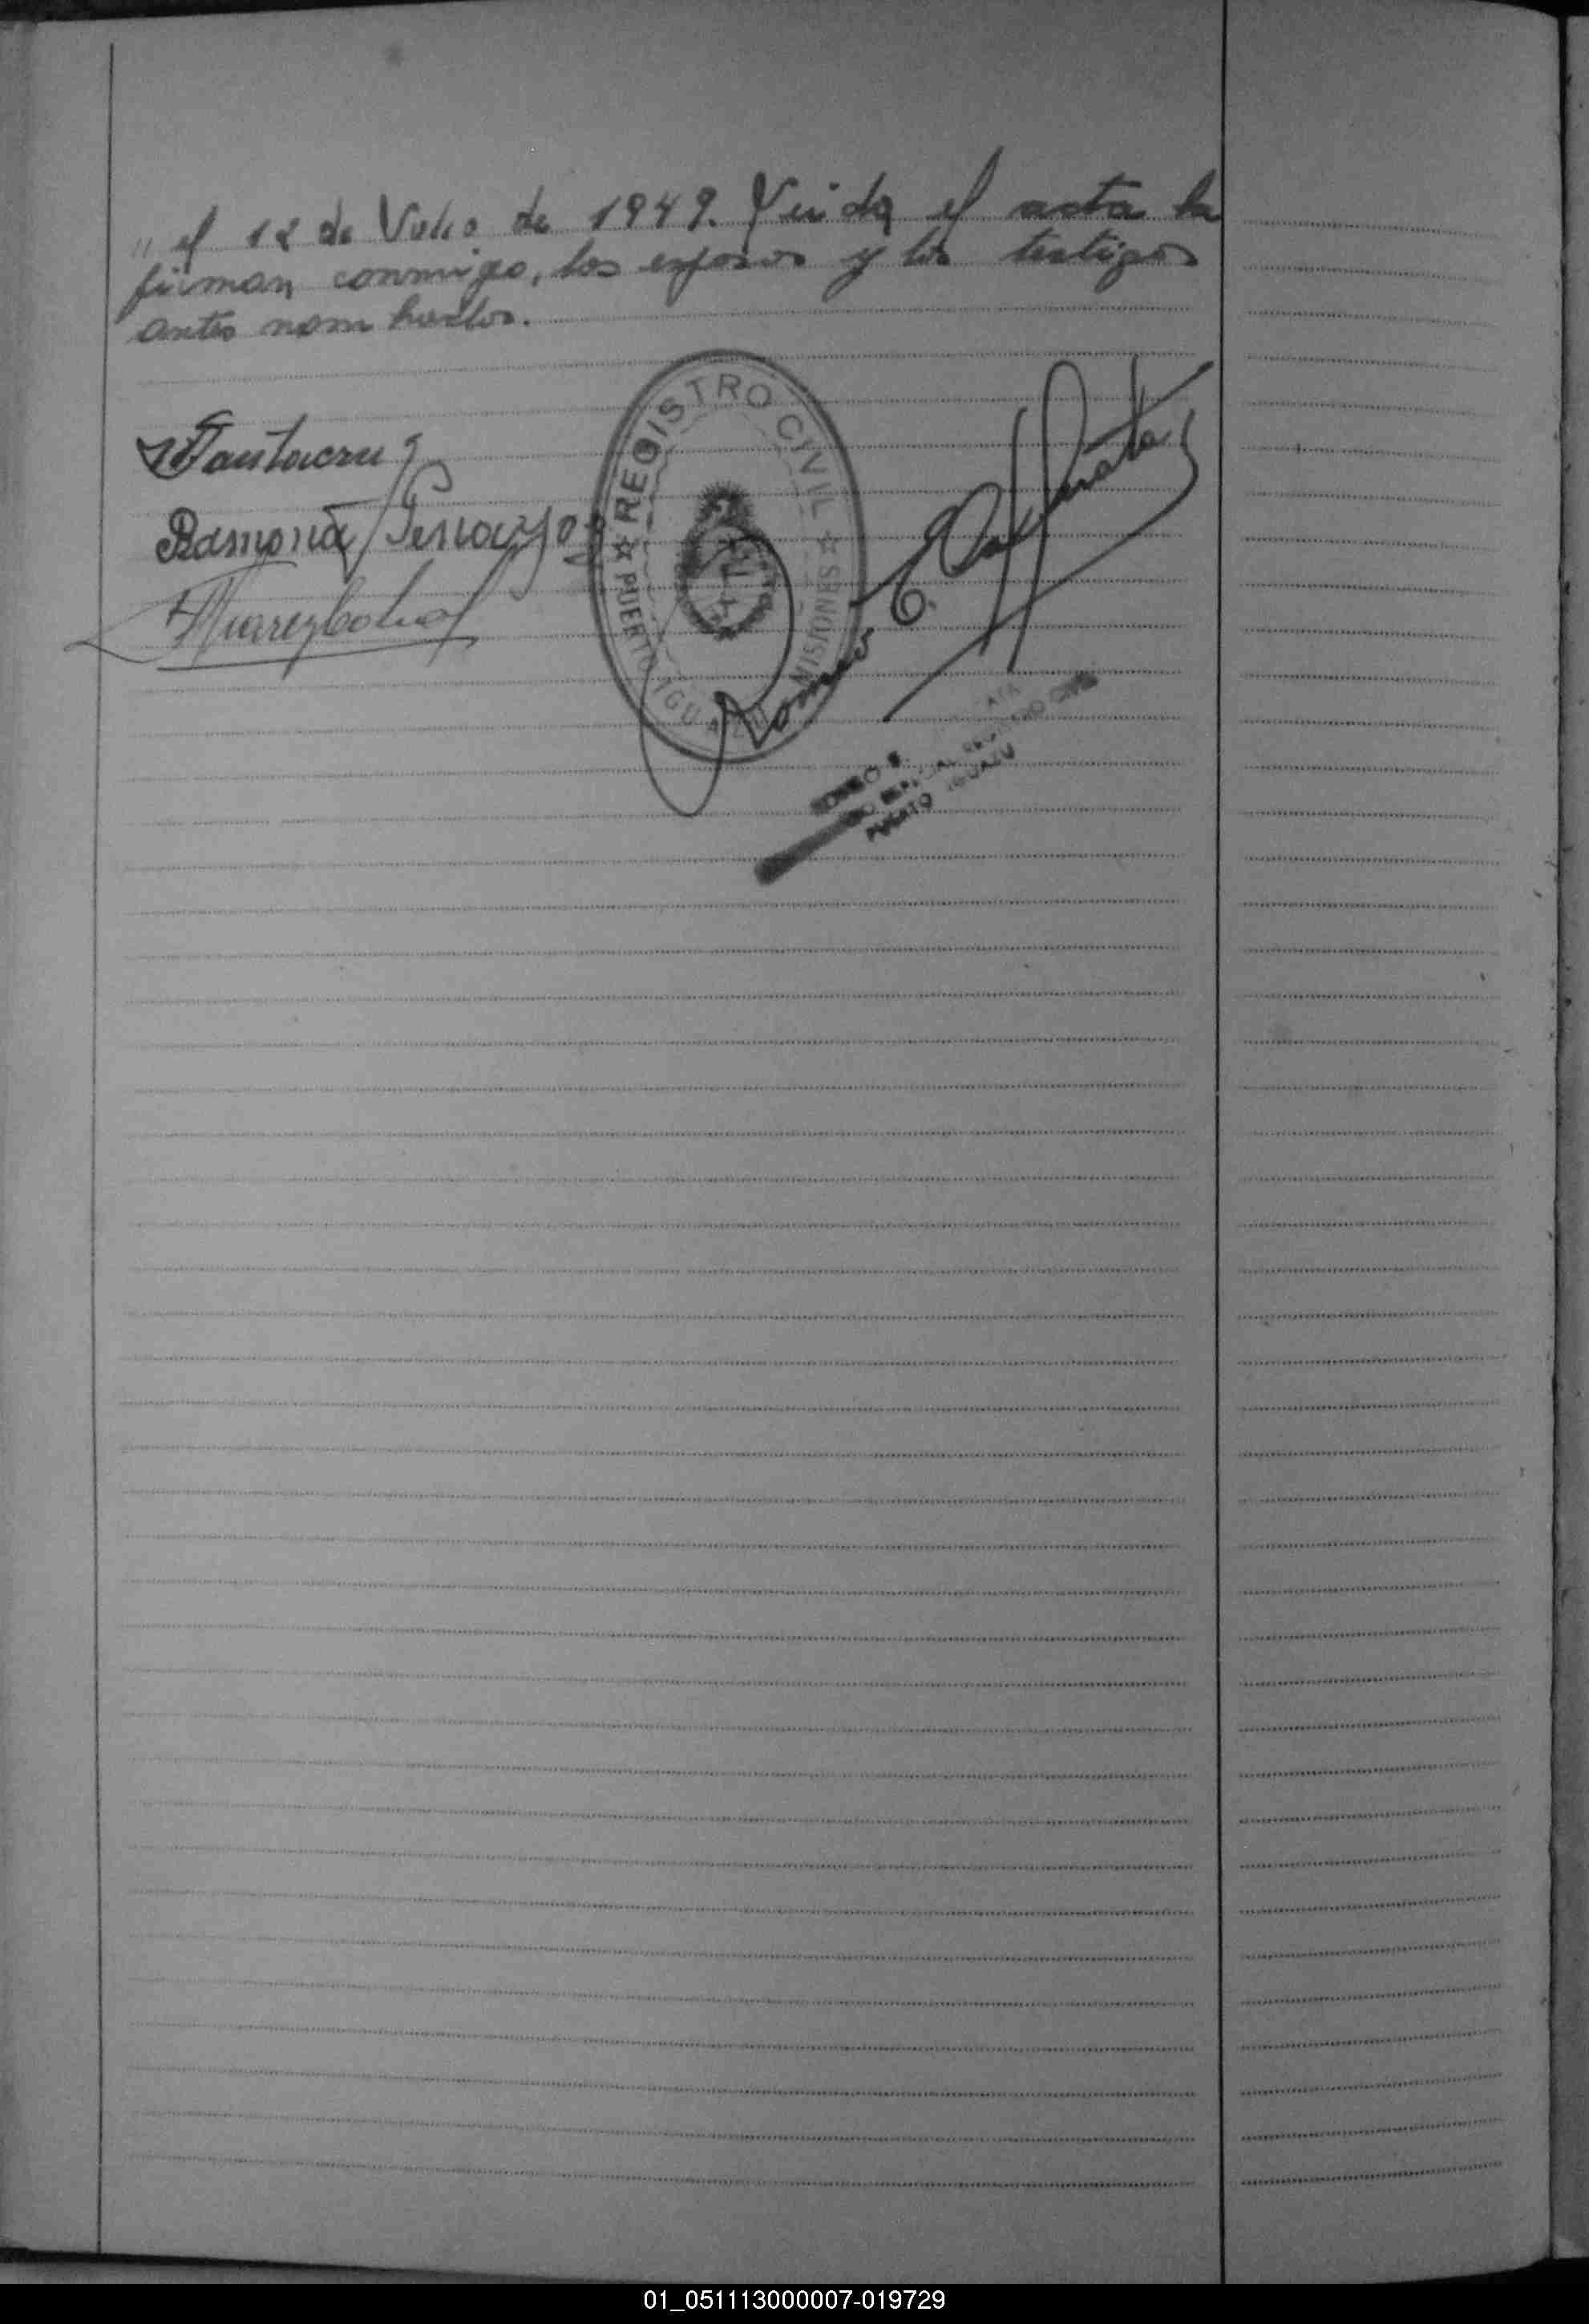 " el 12 de Julio de 1949. Leida el acta la
firman conmigo, los esposos y los testigos
antes nombrados.
Santacruz
Ramona
REGISTRO CIVIL
PUERTO IGUAZU MISIONES
Romeo E.
ROMEO E.
ESPECIAL REGISTRO CIVIL
PUERTO IGUAZU
01_051113000007-019729